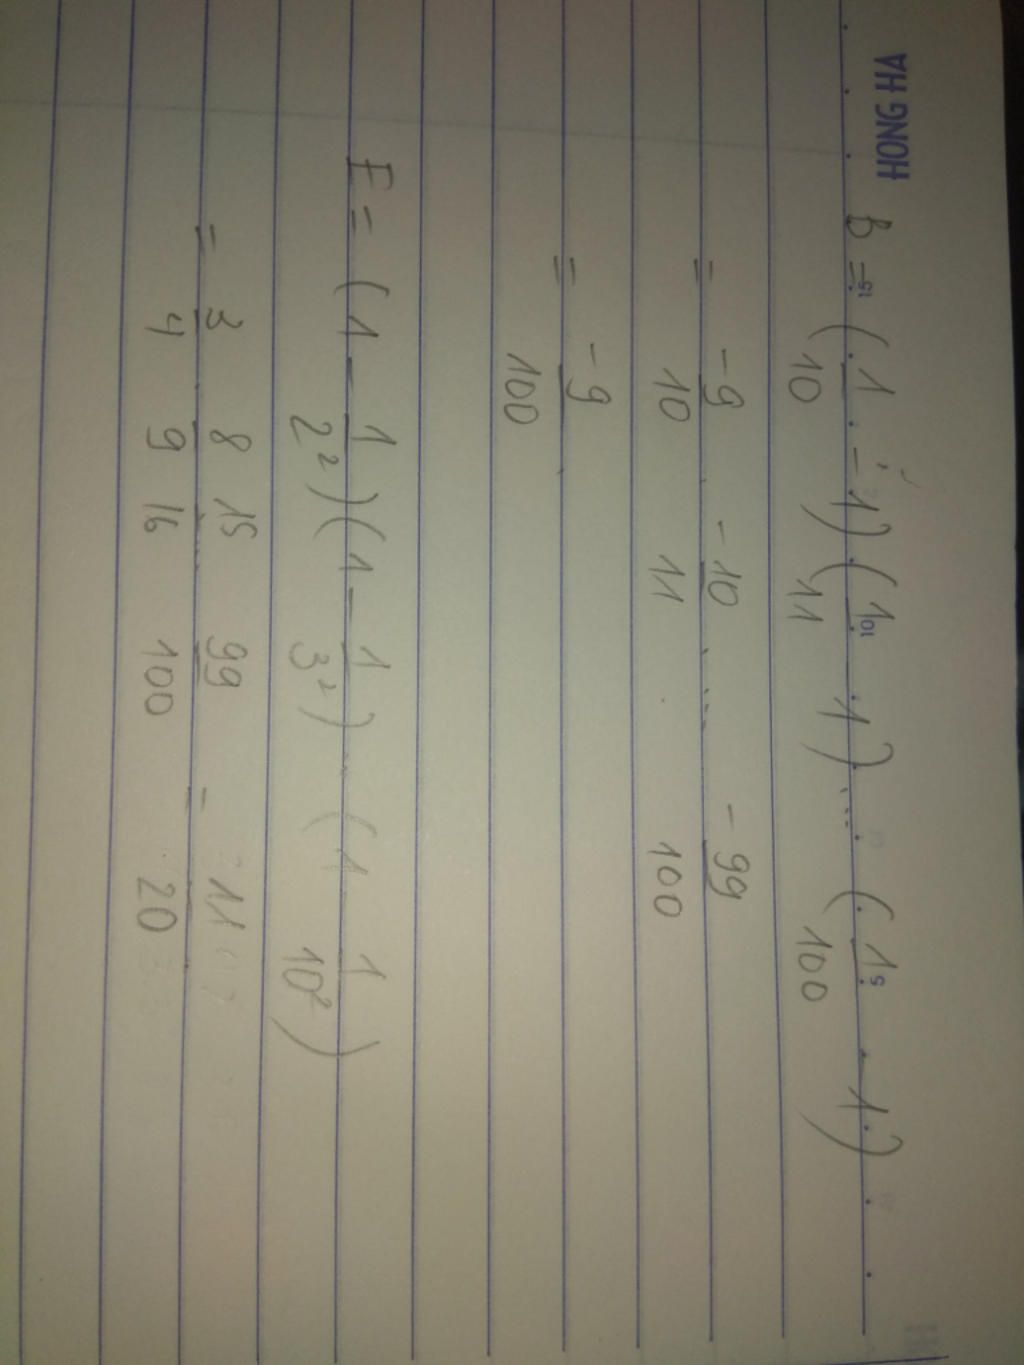 HONG HA
B = (1/10 - 1) (1/11 1) ... (1/100 - 1)
= -9/10 . -10/11 . ... -99/100
= -9/100
F = (1 - 1/2²) (1 - 1/3²) ... (1 1/10²)
= 3/4 . 8/9 15/16 ... 99/100 = 11/20